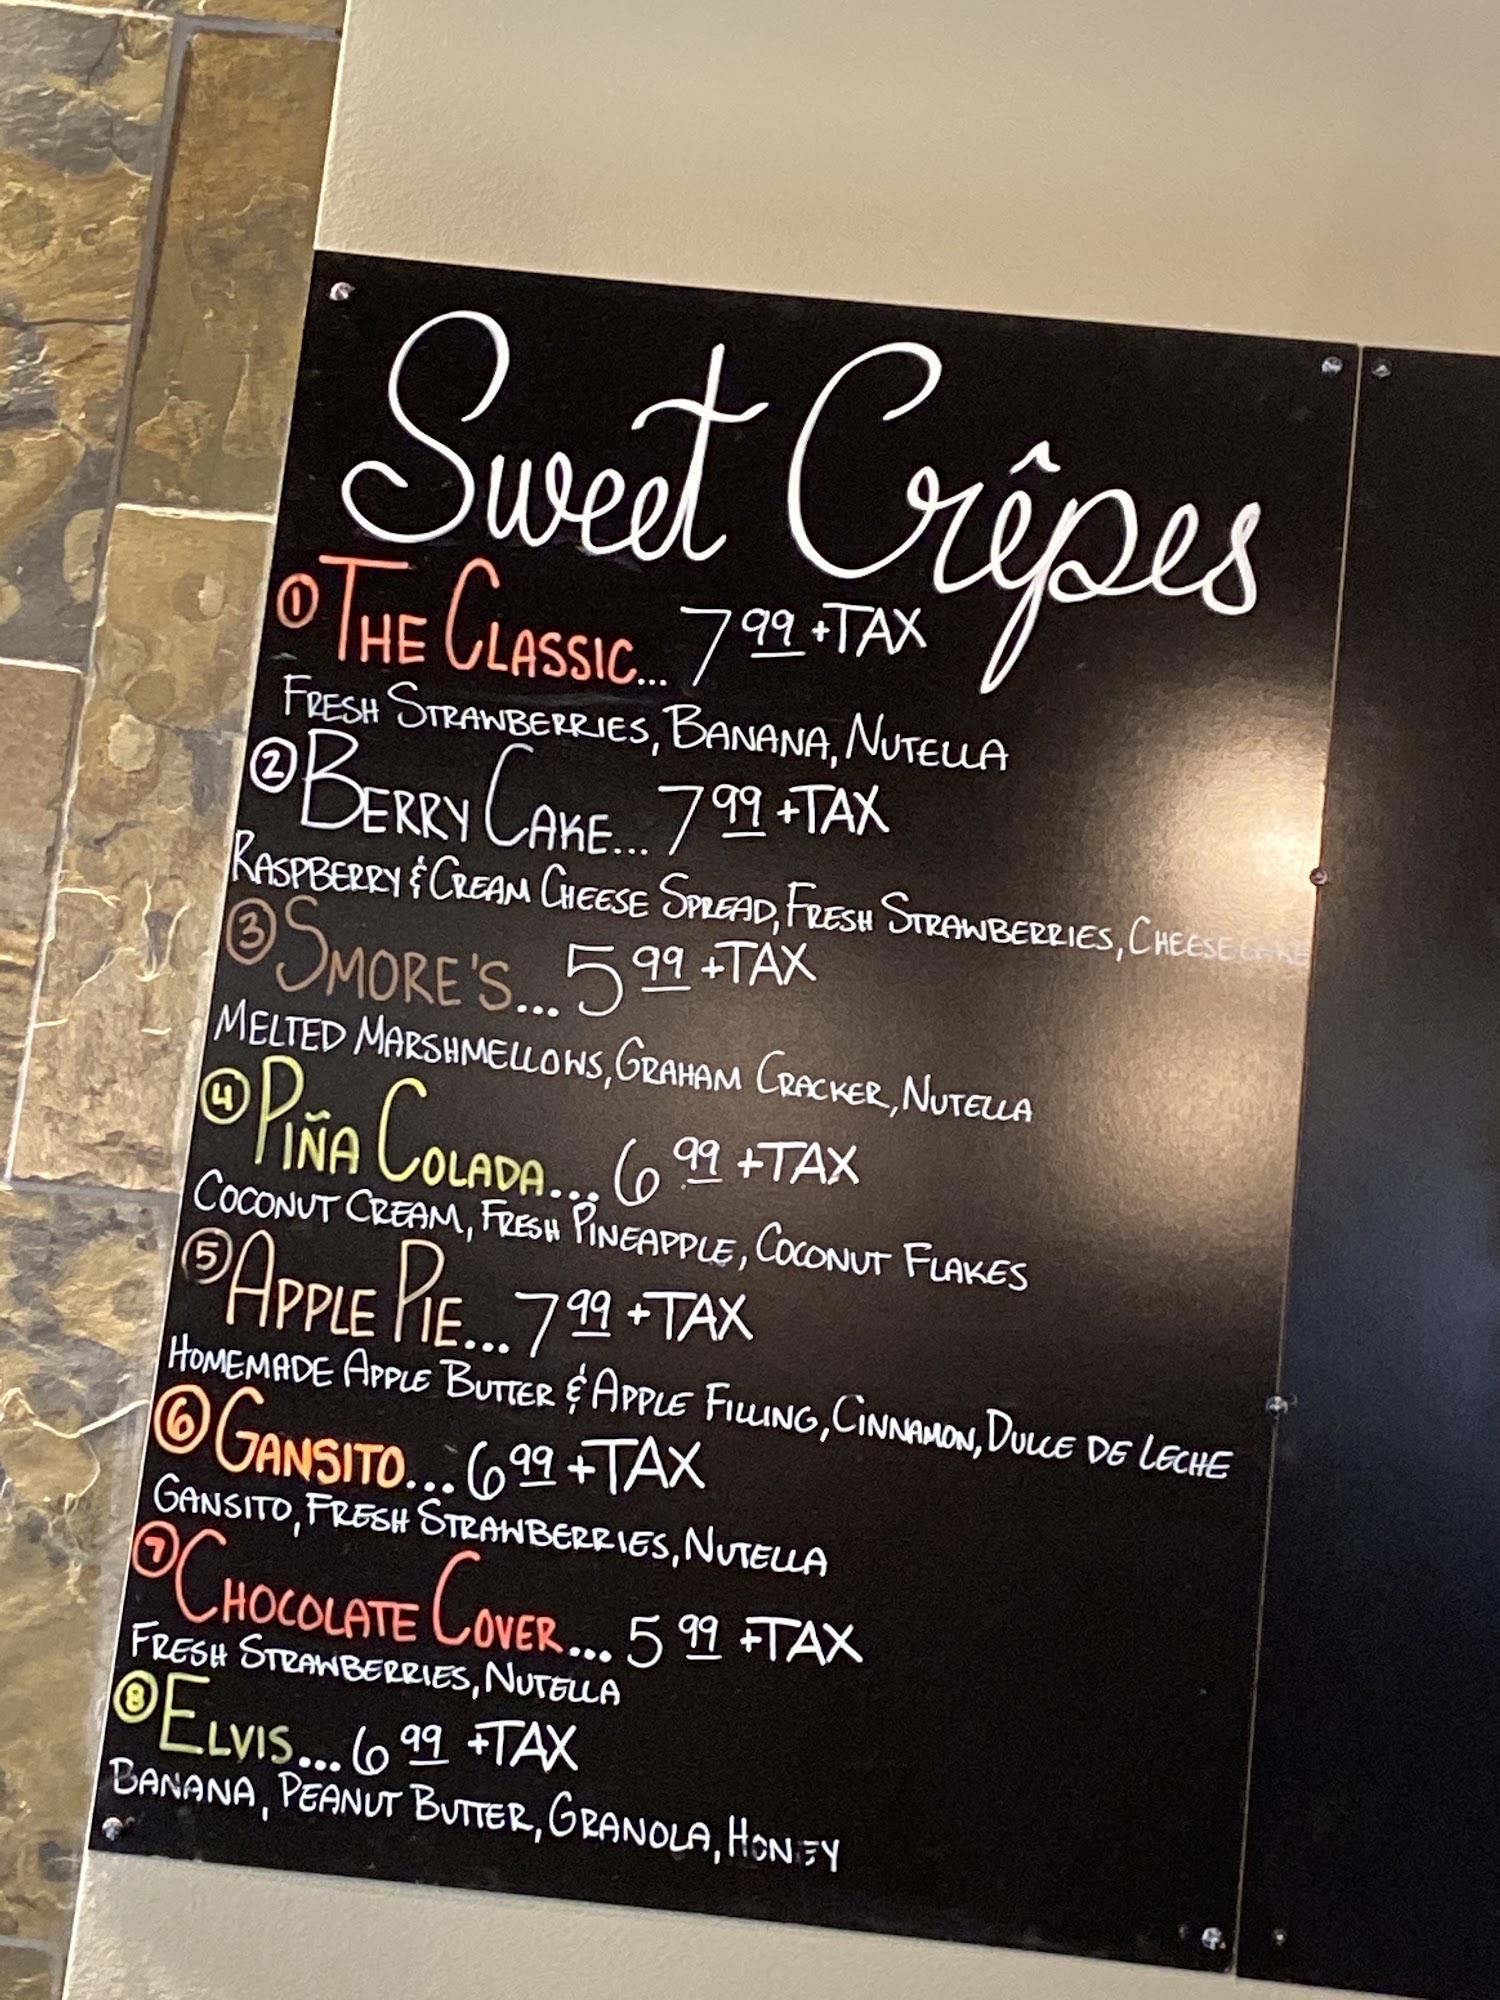 Sweet Crêpes
① THE CLASSIC... 7 99 +TAX
FRESH STRAWBERRIES, BANANA, NUTELLA
② BERRY CAKE... 7 99 +TAX
RASPBERRY & CREAM CHEESE SPREAD, FRESH STRAWBERRIES, CHEESECAKE
③ SMORE'S... 5 99 +TAX
MELTED MARSHMELLOWS, GRAHAM CRACKER, NUTELLA
④ PIÑA COLADA... 6 99 +TAX
COCONUT CREAM, FRESH PINEAPPLE, COCONUT FLAKES
⑤ APPLE PIE... 7 99 +TAX
HOMEMADE APPLE BUTTER & APPLE FILLING, CINNAMON, DULCE DE LECHE
⑥ GANSITO... 6 99 +TAX
GANSITO, FRESH STRAWBERRIES, NUTELLA
⑦ CHOCOLATE COVER... 5 99 +TAX
FRESH STRAWBERRIES, NUTELLA
⑧ ELVIS... 6 99 +TAX
BANANA, PEANUT BUTTER, GRANOLA, HONEY